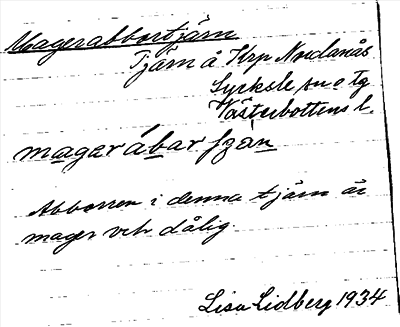 Magerabbortjärn
Tjärn å Krp Nordanås
Lycksele sn o tg
Västerbottens l.
magar ábar fzän
Abborren i denna tjärn är
mager och dålig.
Lisa Lidberg 1934